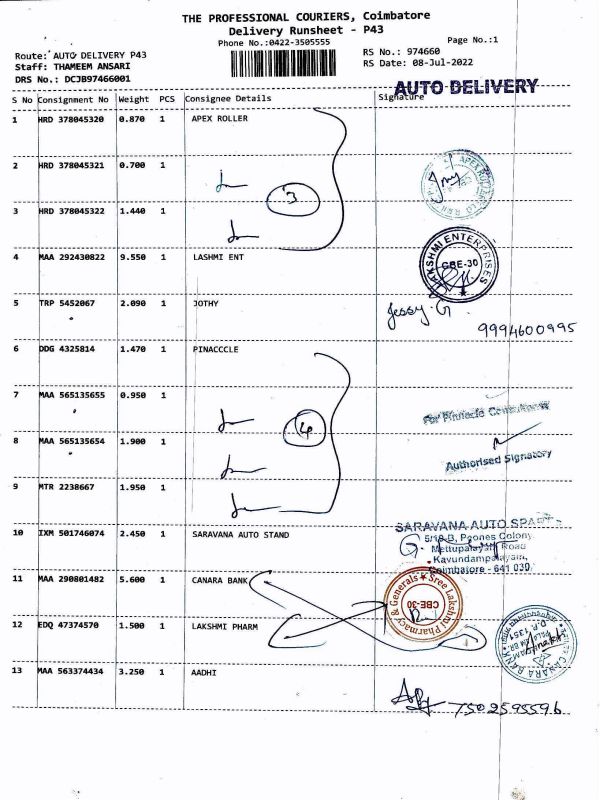 THE PROFESSIONAL COURIERS, Coimbatore
Delivery Runsheet - P43
Phone No.:0422-3505555
Page No.:1
Route: AUTO DELIVERY P43
RS No.: 974660
Staff: THAMEEM ANSARI
RS Date: 08-Jul-2022
DRS No.: DCJB97466001
AUTO DELIVERY
S No Consignment No Weight PCS Consignee Details Signature
1 HRD 378045320 0.870 1 APEX ROLLER
2 HRD 378045321 0.700 1
3
3 HRD 378045322 1.440 1
4 MAA 292430822 9.550 1 LASHMI ENT
LAKSHMI ENTERPRISES
CBE-30
5 TRP 5452067 2.090 1 JOTHY
Jessy. G
9994600995
6 DDG 4325814 1.470 1 PINACCCLE
7 MAA 565135655 0.950 1
For Pinnacle
4
8 MAA 565135654 1.900 1
Authorised Signatory
9 MTR 2238667 1.950 1
10 IXM 501746074 2.450 1 SARAVANA AUTO STAND
SARAVANA AUTO
5/18-B, Peones Colony
Mettupalayam Road
Kavundampalayam,
Coimbatore - 641 030
11 MAA 290801482 5.600 1 CANARA BANK
Sree Lakshmi Pharmacy & Generals
CBE-30
12 EDQ 47374570 1.500 1 LAKSHMI PHARM
CANARA BANK
D.P. 1351
13 MAA 563374434 3.250 1 AADHI
7502595596